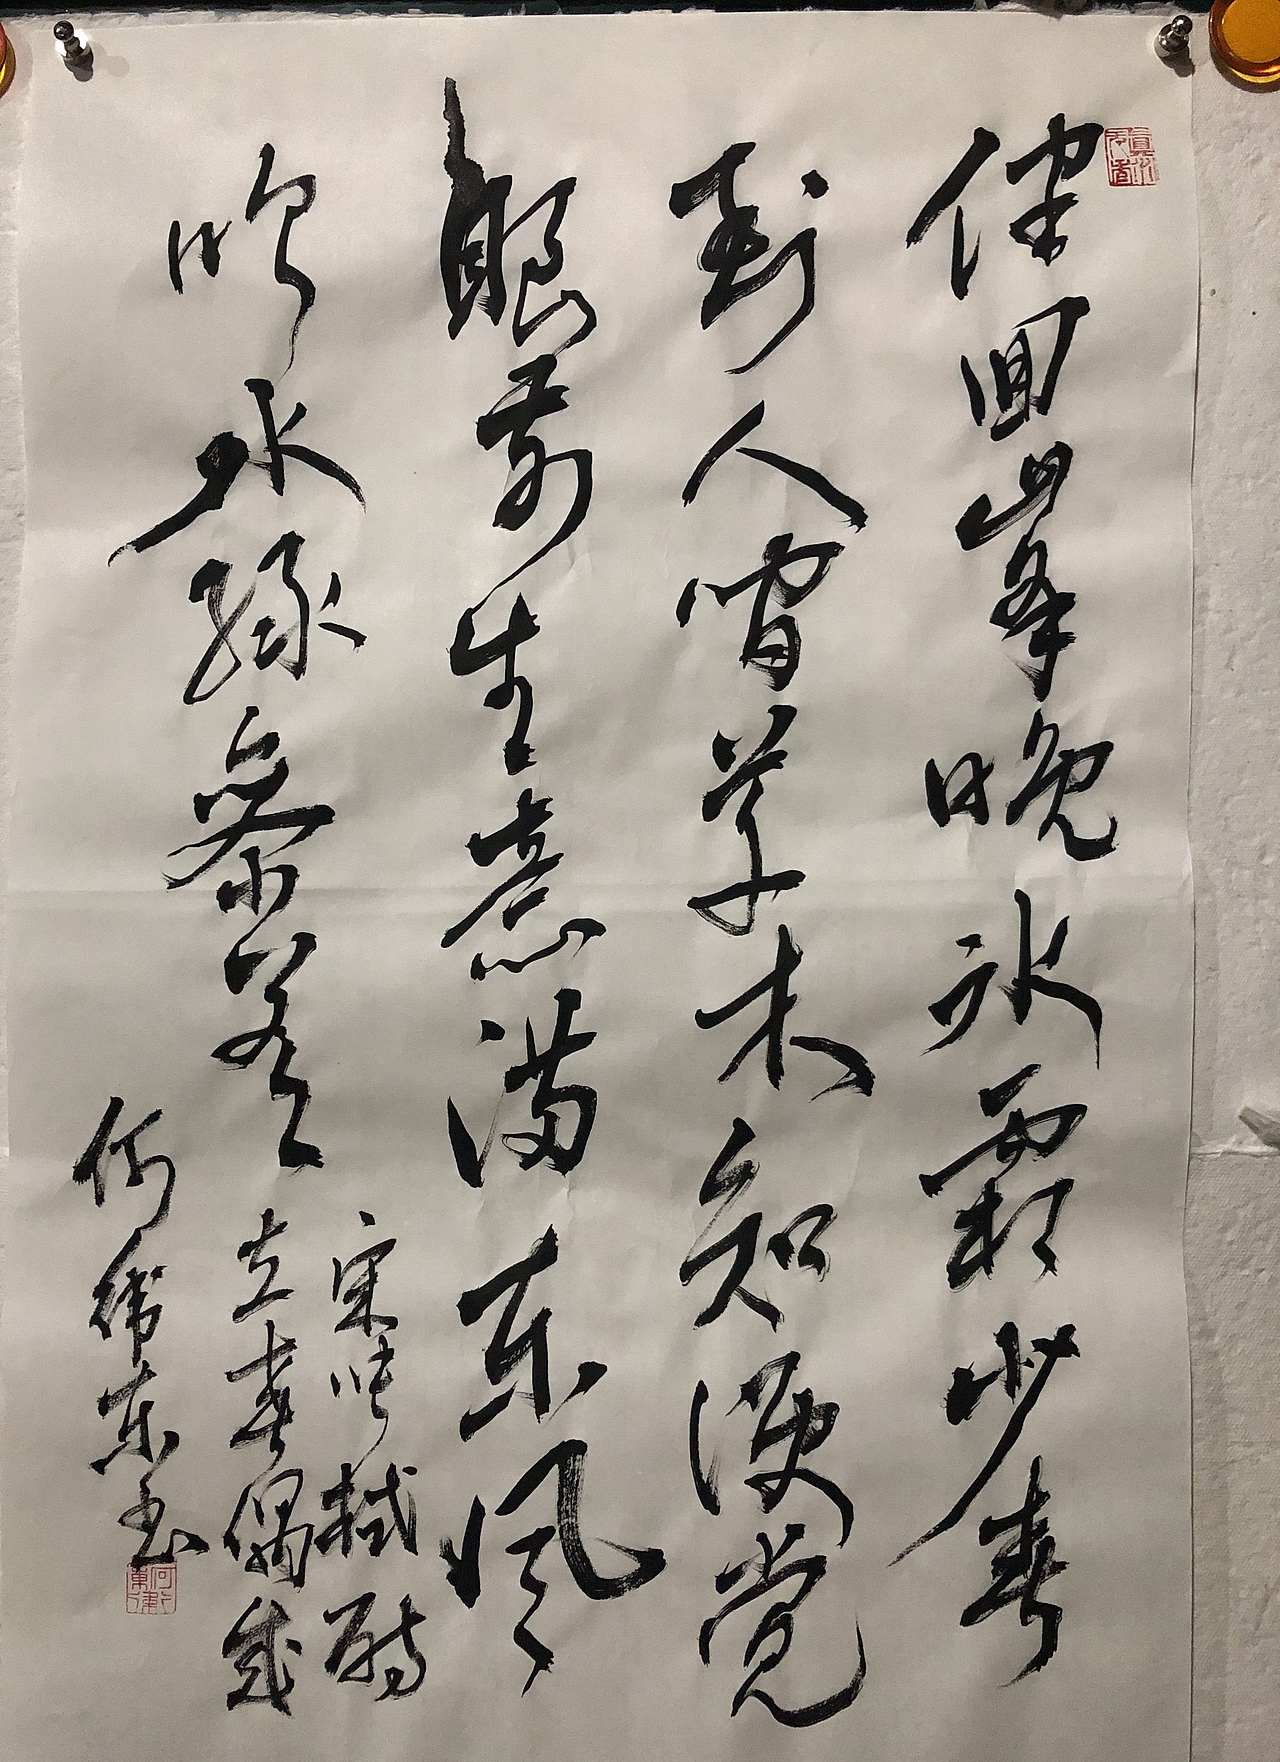 律回峯晚冰霜少春
到人间草木知便觉
眼前生意满东风
吹水绿参差
宋张栻诗
立春偶成
何东书